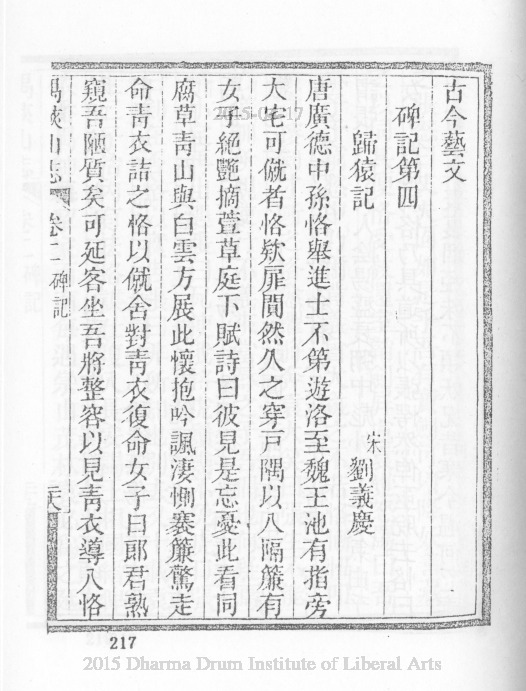 古今藝文
碑記第四
歸猿記
宋 劉義慶
唐廣德中孫恪舉進士不第遊洛至魏王池有指旁
大宅可僦者恪欵扉閴然久之穿戸隅以入隔簾有
女子絕艷摘萱草庭下賦詩曰彼見是忘憂此看同
腐草靑山與白雲方展此懷抱吟諷淒惻褰簾驚走
命靑衣詰之恪以僦舍對靑衣復命女子曰郎君熟
窺吾陋質矣可延客坐吾將整容以見靑衣導入恪
禺峽山志 卷二 碑記
217
2015 Dharma Drum Institute of Liberal Arts